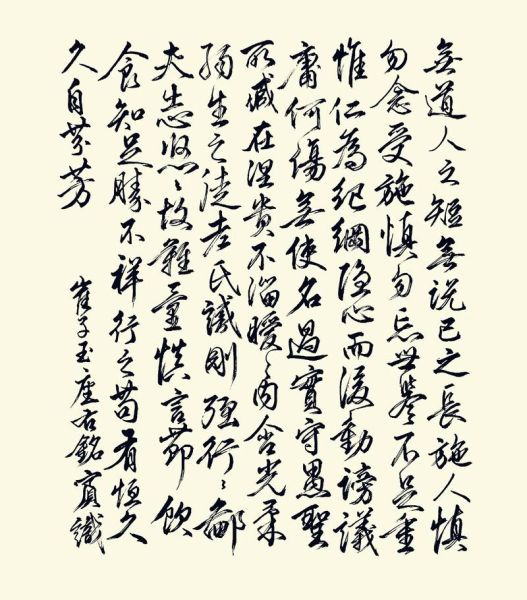 無道人之短無説己之長施人慎
勿念受施慎勿忘世譽不足重
惟仁為紀綱隐心而後動謗議
庸何傷無使名過實守愚聖
所臧在涅貴不淄曖々内含光柔
弱生之徒老氏誡剛强行々鄙
夫志悠々故難量慎言節飲
食知足勝不祥行之苟有恒久
久自芬芳
崔子玉座右銘